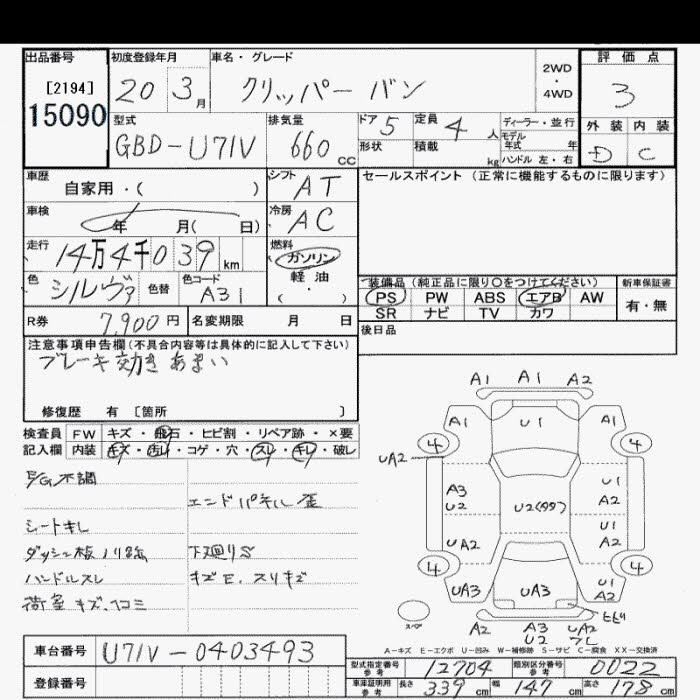 出品番号 初度登録年月 車名・グレード 2WD ・ 4WD 評価点
[2194] 15090 20 3月 クリッパー バン 3
型式 排気量 ドア 5 定員 4人 ディーラー・並行 外装 内装
GBD-U71V 660cc 形状 積載 kg モデル年式 年 ハンドル 左・右 D C
車歴 自家用・( ) シフト AT セールスポイント (正常に機能するものに限ります)
車検 年 月( 日) 冷房 AC
走行 14万4千039km 燃料 ガソリン・軽油 ( )
色 シルヴァ 色替 色コード A31 装備品 (純正品に限り○をつけてください) 新車保証書
PS PW ABS エアB AW 有・無
SR ナビ TV カワ
R券 7,900円 名変期限 月 日 後日品
注意事項申告欄(不具合内容等は具体的に記入して下さい)
ブレーキ効きあまい
修復歴 有 〔箇所 〕
検査員記入欄 FW キズ・飛石・ヒビ割・リペア跡・×要
内装 キズ・汚れ・コゲ・穴・スレ・キレ・破レ
E/G不調
エンドパネル歪
シートキレ
ダッシュ板ノリ跡 下廻りS
ハンドルスレ キズE、スリキズ
荷室キズ、凹ミ
A1 A1 A2
A1 U1 A1
4 4
UA2
A3 U2 U2(99) U1 A2
UA2 U1 A2
4 4
UA3 UA3 U1 A2
ヒビ
スペア A2 A3 U2 UA2
A－キズ E－エクボ U－凹み W－補修跡 S－サビ C－腐食 XX－交換済
車台番号 U71V-0403493
登録番号
型式指定番号 参考 12704 類別区分番号 参考 0022
車庫証明用 参考 長さ 339cm 幅 147cm 高さ 178cm